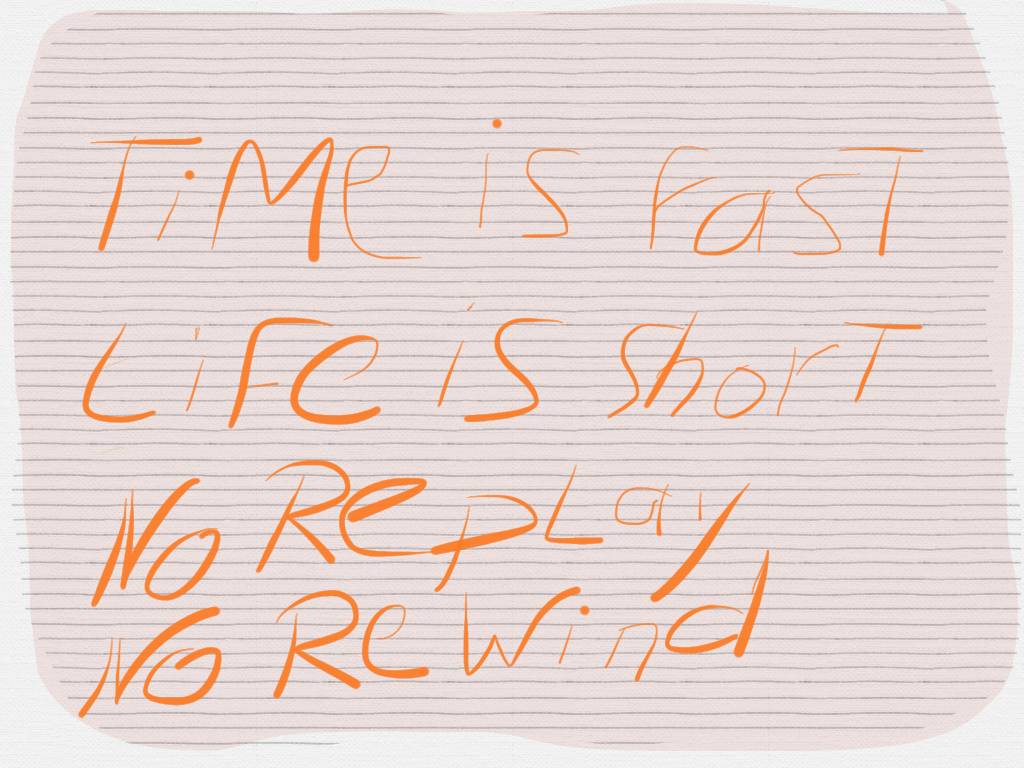 TiMe is FasT
LiFe is ShorT
No RepLay
No Rewind